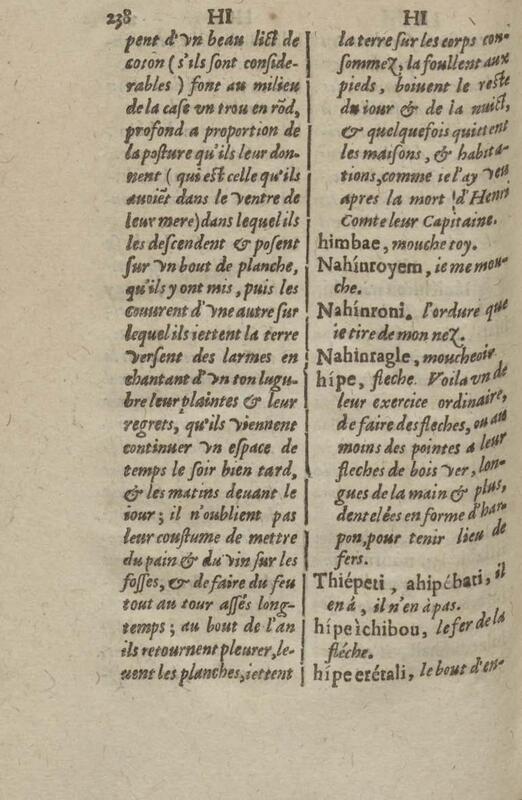 238 HI HI
pent d'vn beau lict de
coton (s'ils sont conside-
rables) font au milieu
de la case vn trou en rõd,
profond a proportion de
la posture qu'ils leur don-
nent (qui est celle qu'ils
auoiẽt dans le ventre de
leur mere) dans lequel ils
les descendent & posent
sur vn bout de planche,
qu'ils y ont mis, puis les
couurent d'vne autre sur
lequel ils iettent la terre
versent des larmes en
chantant d'vn ton lugu-
bre leur plaintes & leur
regrets, qu'ils viennent
continuer vn espace de
temps le soir bien tard,
& les matins deuant le
iour; il n'oublient pas
leur coustume de mettre
du pain & du vin sur les
fosses, & de faire du feu
tout au tour assés long-
temps; au bout de l'an
ils retournent pleurer, le-
uent les planches, iettent
la terre sur les corps con-
sommez, la foullent aux
pieds, boiuent le reste
du iour & de la nuict,
& quelquefois quittent
les maisons, & habita-
tions, comme ie l'ay veu
apres la mort d'Henri
Comte leur Capitaine.
himbae, mouche toy.
Nahínroyem, ie me mou-
che.
Nahínroni. l'ordure que
ie tire de mon nez.
Nahinragle, mouchoir
hípe, fleche. Voila vn de
leur exercice ordinaire,
de faire des fleches, ou au
moins des pointes a leur
fleches de bois ver, lon-
gues de la main & plus,
dentelées en forme d'har-
pon, pour tenir lieu de
fers.
Thiépeti, ahipébati, il
en á, il n'en à pas.
hípeìchibou, le fer de la
fléche.
hípe erétali, le bout d'en-